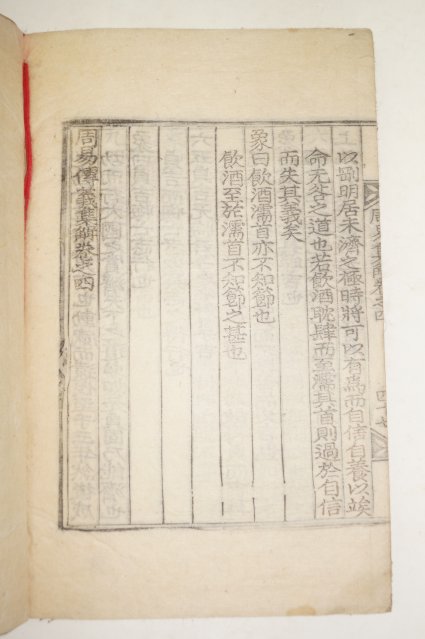 以剛明居未濟之極時將可以有爲而自信自養以竢
命无咎之道也若飮酒耽肆而至濡其首則過於自信
而失其義矣
象曰飮酒濡首亦不知節也
飮酒至於濡首不知節之甚也
周易傳義集解卷之四